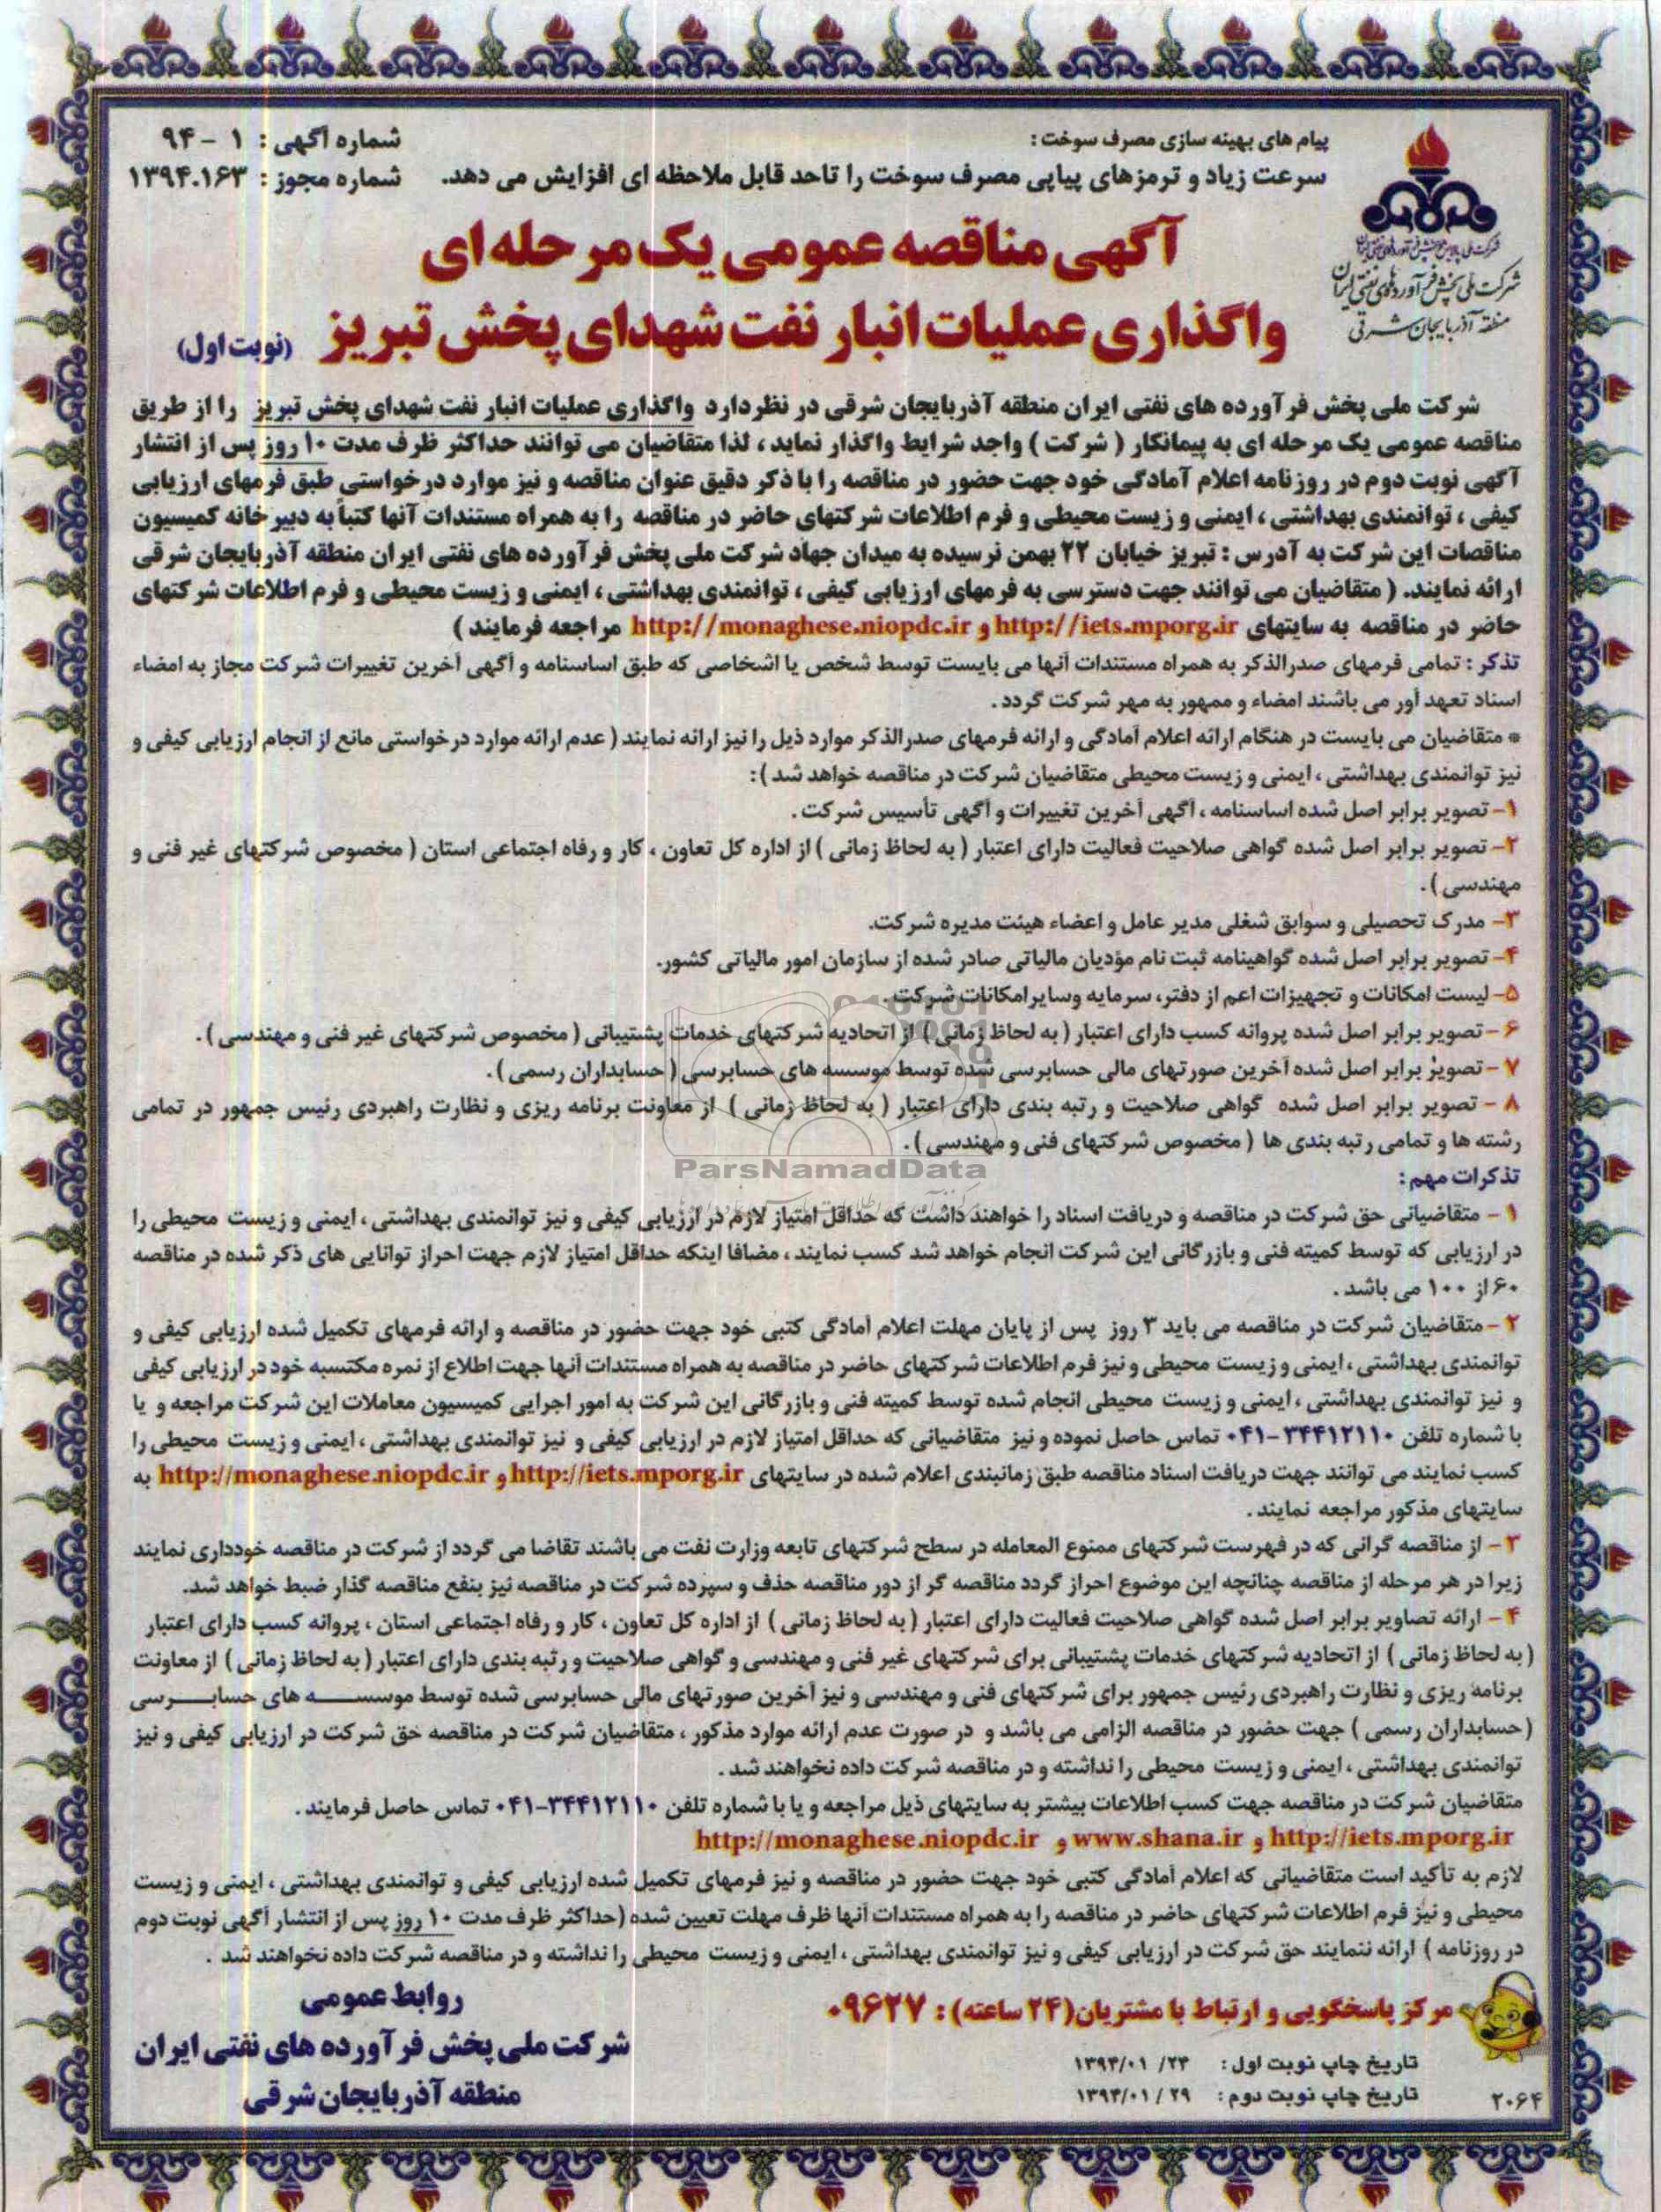 پیام های بهینه سازی مصرف سوخت :
سرعت زیاد و ترمزهای پیاپی مصرف سوخت را تاحد قابل ملاحظه ای افزایش می دهد.
شماره آگهی : ۱ - ۹۴
شماره مجوز : ۱۳۹۴.۱۶۳
شرکت ملی پالایش و پخش فرآورده های نفتی ایران
شرکت ملی پخش فرآورده های نفتی ایران
منطقه آذربایجان شرقی
آگهی مناقصه عمومی یک مرحله ای
واگذاری عملیات انبار نفت شهدای پخش تبریز (نوبت اول)
شرکت ملی پخش فرآورده های نفتی ایران منطقه آذربایجان شرقی در نظر دارد واگذاری عملیات انبار نفت شهدای پخش تبریز را از طریق
مناقصه عمومی یک مرحله ای به پیمانکار ( شرکت ) واجد شرایط واگذار نماید ، لذا متقاضیان می توانند حداکثر ظرف مدت ۱۰ روز پس از انتشار
آگهی نوبت دوم در روزنامه اعلام آمادگی خود جهت حضور در مناقصه را با ذکر دقیق عنوان مناقصه و نیز موارد درخواستی طبق فرمهای ارزیابی
کیفی ، توانمندی بهداشتی ، ایمنی و زیست محیطی و فرم اطلاعات شرکتهای حاضر در مناقصه را به همراه مستندات آنها کتباً به دبیرخانه کمیسیون
مناقصات این شرکت به آدرس : تبریز خیابان ۲۲ بهمن نرسیده به میدان جهاد شرکت ملی پخش فرآورده های نفتی ایران منطقه آذربایجان شرقی
ارائه نمایند. ( متقاضیان می توانند جهت دسترسی به فرمهای ارزیابی کیفی ، توانمندی بهداشتی ، ایمنی و زیست محیطی و فرم اطلاعات شرکتهای
حاضر در مناقصه به سایتهای http://iets.mporg.ir و http://monaghese.niopdc.ir مراجعه فرمایند )
تذکر : تمامی فرمهای صدرالذکر به همراه مستندات آنها می بایست توسط شخص یا اشخاصی که طبق اساسنامه و آگهی آخرین تغییرات شرکت مجاز به امضاء
اسناد تعهد آور می باشند امضاء و ممهور به مهر شرکت گردد .
* متقاضیان می بایست در هنگام ارائه اعلام آمادگی و ارائه فرمهای صدرالذکر موارد ذیل را نیز ارائه نمایند ( عدم ارائه موارد درخواستی مانع از انجام ارزیابی کیفی و
نیز توانمندی بهداشتی ، ایمنی و زیست محیطی متقاضیان شرکت در مناقصه خواهد شد ):
۱- تصویر برابر اصل شده اساسنامه ، آگهی آخرین تغییرات و آگهی تأسیس شرکت .
۲- تصویر برابر اصل شده گواهی صلاحیت فعالیت دارای اعتبار ( به لحاظ زمانی ) از اداره کل تعاون ، کار و رفاه اجتماعی استان ( مخصوص شرکتهای غیر فنی و
مهندسی ) .
۳- مدرک تحصیلی و سوابق شغلی مدیر عامل و اعضاء هیئت مدیره شرکت.
۴- تصویر برابر اصل شده گواهینامه ثبت نام مؤدیان مالیاتی صادر شده از سازمان امور مالیاتی کشور.
۵- لیست امکانات و تجهیزات اعم از دفتر، سرمایه وسایر امکانات شرکت .
۶ - تصویر برابر اصل شده پروانه کسب دارای اعتبار ( به لحاظ زمانی ) از اتحادیه شرکتهای خدمات پشتیبانی ( مخصوص شرکتهای غیر فنی و مهندسی ) .
۷ - تصویر برابر اصل شده آخرین صورتهای مالی حسابرسی شده توسط موسسه های حسابرسی ( حسابداران رسمی ) .
۸ - تصویر برابر اصل شده گواهی صلاحیت و رتبه بندی دارای اعتبار ( به لحاظ زمانی ) از معاونت برنامه ریزی و نظارت راهبردی رئیس جمهور در تمامی
رشته ها و تمامی رتبه بندی ها ( مخصوص شرکتهای فنی و مهندسی ) .
ParsNamadData
تذکرات مهم :
۱ - متقاضیانی حق شرکت در مناقصه و دریافت اسناد را خواهند داشت که حداقل امتیاز لازم در ارزیابی کیفی و نیز توانمندی بهداشتی ، ایمنی و زیست محیطی را
در ارزیابی که توسط کمیته فنی و بازرگانی این شرکت انجام خواهد شد کسب نمایند ، مضافا اینکه حداقل امتیاز لازم جهت احراز توانایی های ذکر شده در مناقصه
۶۰ از ۱۰۰ می باشد .
۲ - متقاضیان شرکت در مناقصه می باید ۳ روز پس از پایان مهلت اعلام آمادگی کتبی خود جهت حضور در مناقصه و ارائه فرمهای تکمیل شده ارزیابی کیفی و
توانمندی بهداشتی ، ایمنی و زیست محیطی و نیز فرم اطلاعات شرکتهای حاضر در مناقصه به همراه مستندات آنها جهت اطلاع از نمره مکتسبه خود در ارزیابی کیفی
و نیز توانمندی بهداشتی ، ایمنی و زیست محیطی انجام شده توسط کمیته فنی و بازرگانی این شرکت به امور اجرایی کمیسیون معاملات این شرکت مراجعه و یا
با شماره تلفن ۳۴۴۱۲۱۱۰-۰۴۱ تماس حاصل نموده و نیز متقاضیانی که حداقل امتیاز لازم در ارزیابی کیفی و نیز توانمندی بهداشتی ، ایمنی و زیست محیطی را
کسب نمایند می توانند جهت دریافت اسناد مناقصه طبق زمانبندی اعلام شده در سایتهای http://iets.mporg.ir و http://monaghese.niopdc.ir به
سایتهای مذکور مراجعه نمایند .
۳- از مناقصه گرانی که در فهرست شرکتهای ممنوع المعامله در سطح شرکتهای تابعه وزارت نفت می باشند تقاضا می گردد از شرکت در مناقصه خودداری نمایند
زیرا در هر مرحله از مناقصه چنانچه این موضوع احراز گردد مناقصه گر از دور مناقصه حذف و سپرده شرکت در مناقصه نیز بنفع مناقصه گذار ضبط خواهد شد.
۴- ارائه تصاویر برابر اصل شده گواهی صلاحیت فعالیت دارای اعتبار ( به لحاظ زمانی ) از اداره کل تعاون ، کار و رفاه اجتماعی استان ، پروانه کسب دارای اعتبار
( به لحاظ زمانی ) از اتحادیه شرکتهای خدمات پشتیبانی برای شرکتهای غیر فنی و مهندسی و گواهی صلاحیت و رتبه بندی دارای اعتبار ( به لحاظ زمانی ) از معاونت
برنامه ریزی و نظارت راهبردی رئیس جمهور برای شرکتهای فنی و مهندسی و نیز آخرین صورتهای مالی حسابرسی شده توسط موسسه های حسابرسی
( حسابداران رسمی ) جهت حضور در مناقصه الزامی می باشد و در صورت عدم ارائه موارد مذکور ، متقاضیان شرکت در مناقصه حق شرکت در ارزیابی کیفی و نیز
توانمندی بهداشتی ، ایمنی و زیست محیطی را نداشته و در مناقصه شرکت داده نخواهند شد .
متقاضیان شرکت در مناقصه جهت کسب اطلاعات بیشتر به سایتهای ذیل مراجعه و یا با شماره تلفن ۳۴۴۱۲۱۱۰-۰۴۱ تماس حاصل فرمایند .
http://iets.mporg.ir و www.shana.ir و http://monaghese.niopdc.ir
لازم به تأکید است متقاضیانی که اعلام آمادگی کتبی خود جهت حضور در مناقصه و نیز فرمهای تکمیل شده ارزیابی کیفی و توانمندی بهداشتی ، ایمنی و زیست
محیطی و نیز فرم اطلاعات شرکتهای حاضر در مناقصه را به همراه مستندات آنها ظرف مهلت تعیین شده (حداکثر ظرف مدت ۱۰ روز پس از انتشار آگهی نوبت دوم
در روزنامه ) ارائه ننمایند حق شرکت در ارزیابی کیفی و نیز توانمندی بهداشتی ، ایمنی و زیست محیطی را نداشته و در مناقصه شرکت داده نخواهند شد .
مرکز پاسخگویی و ارتباط با مشتریان(۲۴ ساعته) : ۰۹۶۲۷
تاریخ چاپ نوبت اول : ۱۳۹۴/۰۱ /۲۳
تاریخ چاپ نوبت دوم : ۱۳۹۴/۰۱ / ۲۹
روابط عمومی
شرکت ملی پخش فرآورده های نفتی ایران
منطقه آذربایجان شرقی
۲۰۶۴